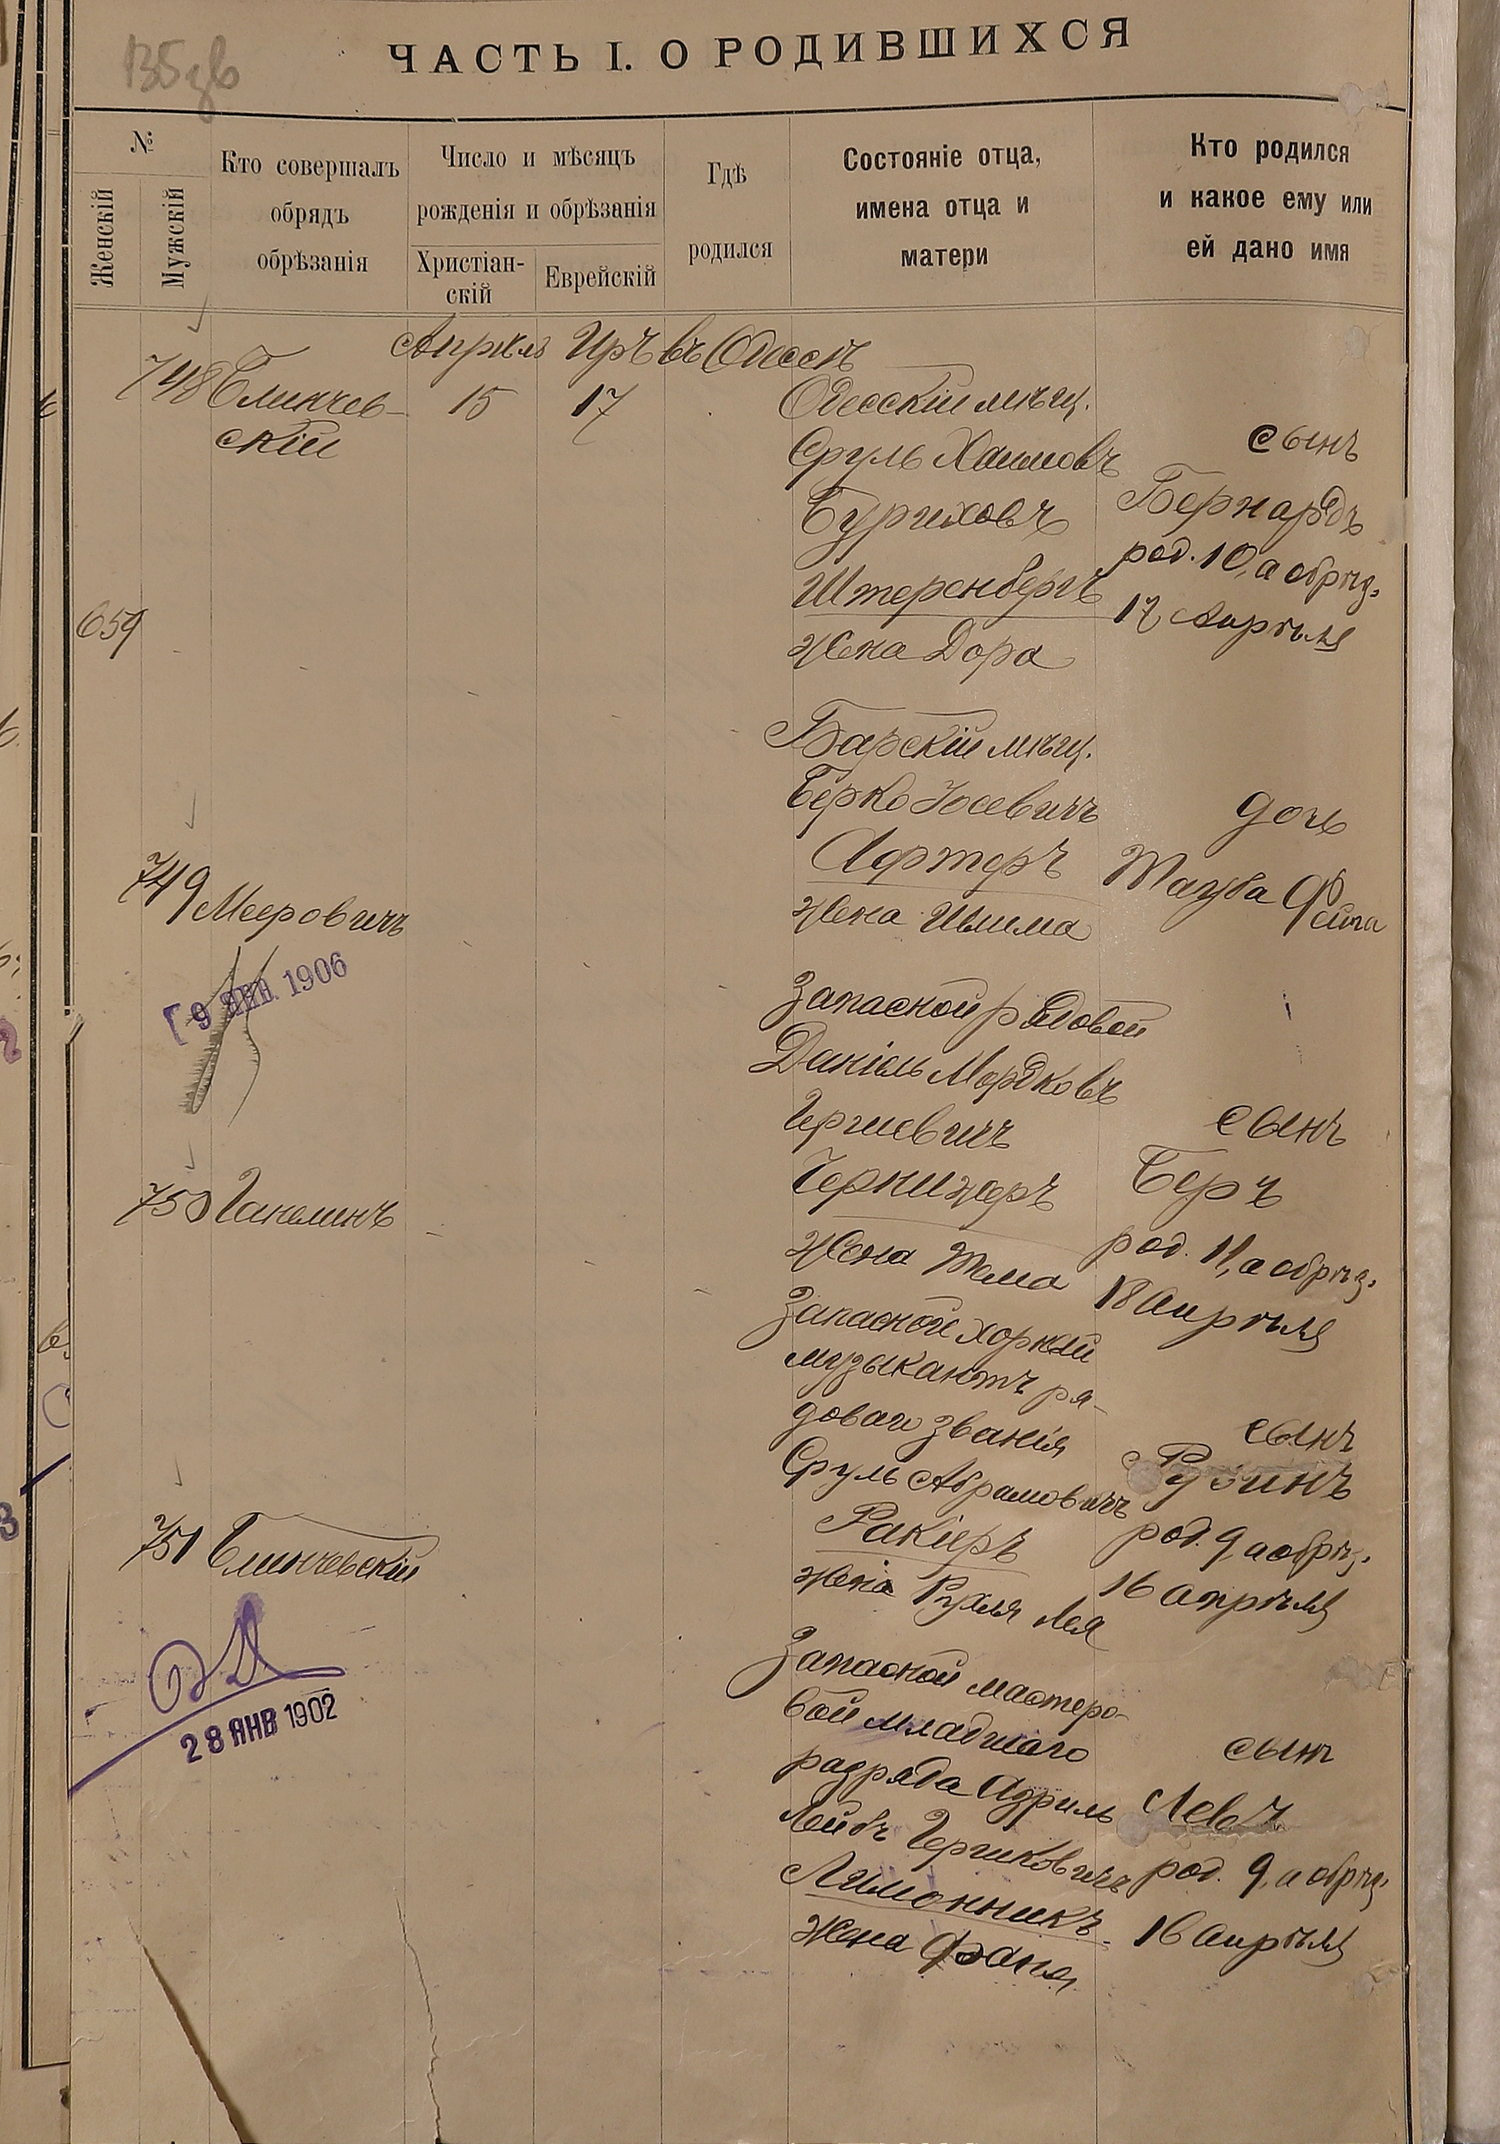 135 об
ЧАСТЬ I. О РОДИВШИХСЯ
№
Женскій
Мужскій
Кто совершалъ
обрядъ
обрѣзанія
Число и мѣсяцъ
рожденія и обрѣзанія
Христіан-
скій
Еврейскій
Гдѣ
родился
Состояніе отца,
имена отца и
матери
Кто родился
и какое ему или
ей дано имя
Апрѣль Иръ въ Одессѣ
748 Блинчев-
скій
15
17
Одесскій мѣщ.
Сруль Хаимовъ
Бурихов
Штеренбергъ
жена Дора
сынъ
Бернардъ
род. 10, а обрѣз.
17 Апрѣля
659
Барскій мѣщ.
Берко Іосевичъ
Афтеръ
жена
дочь
Тауба Фейга
749 Мееровичъ
9 ЯНВ. 1906
Запасной рядовой
Даніель Мордковъ
Гершевичъ
жена Тема
сынъ
Беръ
род. 11, а обрѣз.
18 Апрѣля
750 Ганелинъ
Запасной хорный
музыкантъ ря-
доваго званія
Сруль Абрамовичъ
Ракіеръ
жена Рухля Лея
сынъ
Рувинъ
род. 9, а обрѣз.
16 апрѣля
751 Блинчевскій
28 ЯНВ 1902
Запасной мастеро-
вой младшаго
разряда Азриль
Лейбъ Гершковичъ
Лимонникъ
жена Фаня
сынъ
Левъ
род. 9, а обрѣз.
16 Апрѣля